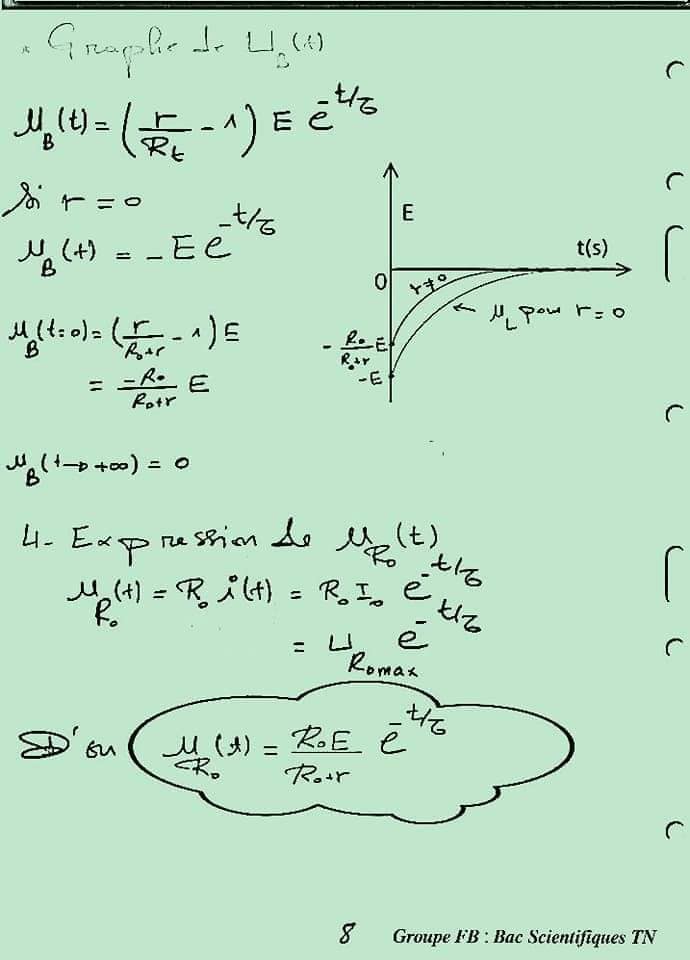 * Graphe de U_B(t)
u_B(t) = (r/R_t - 1) E e^(-t/τ)
Si r = 0
u_B(t) = - E e^(-t/τ)
u_B(t=0) = (r/(R₀+r) - 1) E
= -R₀/(R₀+r) E
u_B(t→+∞) = 0
E
t(s)
0
r≠0
← u_L pour r = 0
- R₀/(R₀+r) E
-E
4- Expression de u_R₀(t)
u_R₀(t) = R₀ i(t) = R₀ I₀ e^(-t/τ)
= U_R₀max e^(-t/τ)
D'où u_R₀(t) = R₀E/(R₀+r) e^(-t/τ)
8 Groupe FB : Bac Scientifiques TN